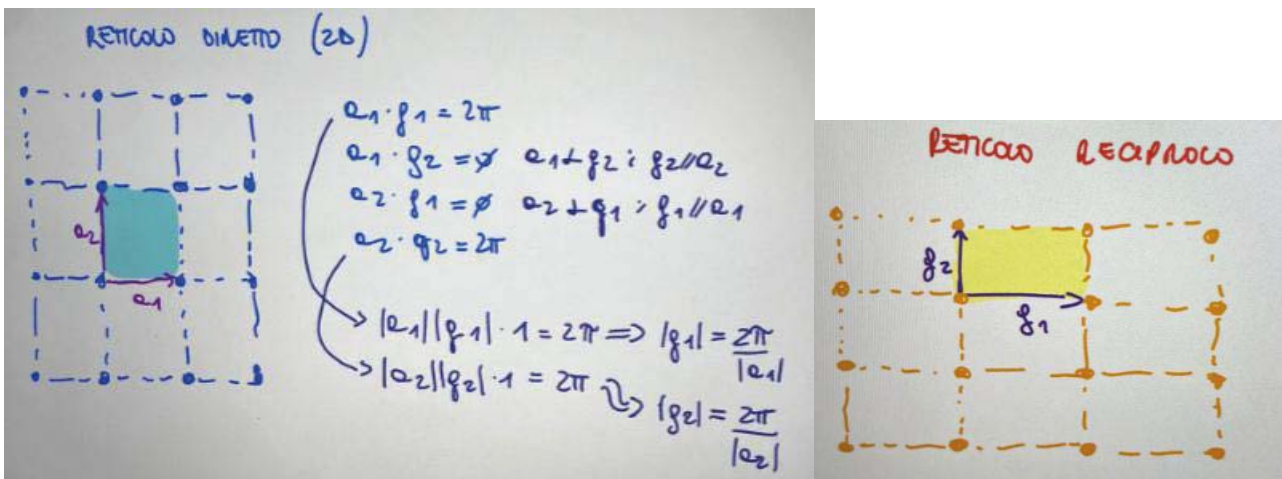 RETICOLO DIRETTO (2D)
a1 · g1 = 2π
a1 · g2 = ø a1 ⊥ g2 ; g2 // a2
a2 · g1 = ø a2 ⊥ g1 ; g1 // a1
a2 · g2 = 2π
a2
a1
|a1||g1| · 1 = 2π => |g1| = 2π/|a1|
|a2||g2| · 1 = 2π => |g2| = 2π/|a2|
RETICOLO RECIPROCO
g2
g1